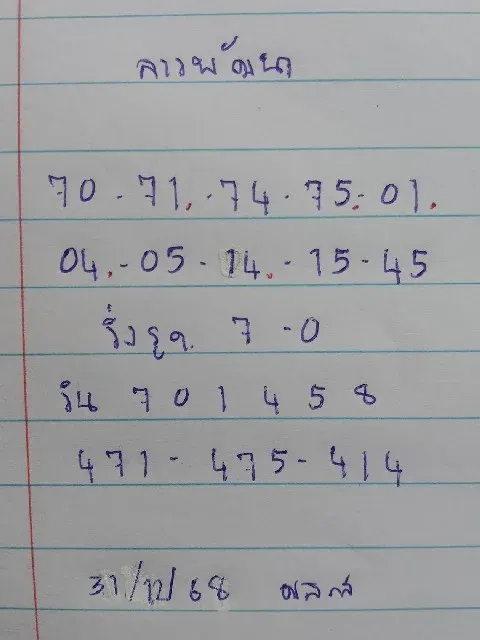 ลาวพัฒนา
70 - 71. - 74 - 75. - 01.
04. - 05 - 14. - 15 - 45
วิ่งรูด. 7 - 0
วิน 7 0 1 4 5 8
471 - 475 - 414
31/12/68